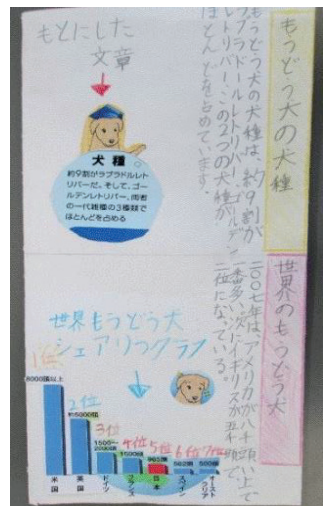 もうどう犬の犬種
もうどう犬の犬種は、約9割が
ラブラドールレトリバー、ゴールデン
レトリバー、この2つの犬種が
ほとんどを占めています。
もとにした
文章
犬種
約9割がラブラドルレト
リバーだ。そして、ゴー
ルデンレトリバー、両者
の一代雑種の3種類で
ほとんどを占める
世界のもうどう犬
二〇〇七年は、アメリカが八千頭以上で
一番多い、次にイギリスが五千頭で、
二位になっている。
世界もうどう犬
シェアリつグラフ
1位
8000頭以上
2位
約5000頭
3位
1500〜
2000頭
4位
1500頭
5位
6位
7位
500頭
米国
英国
ドイツ
フランス
日本
スペイン
オーストラリア